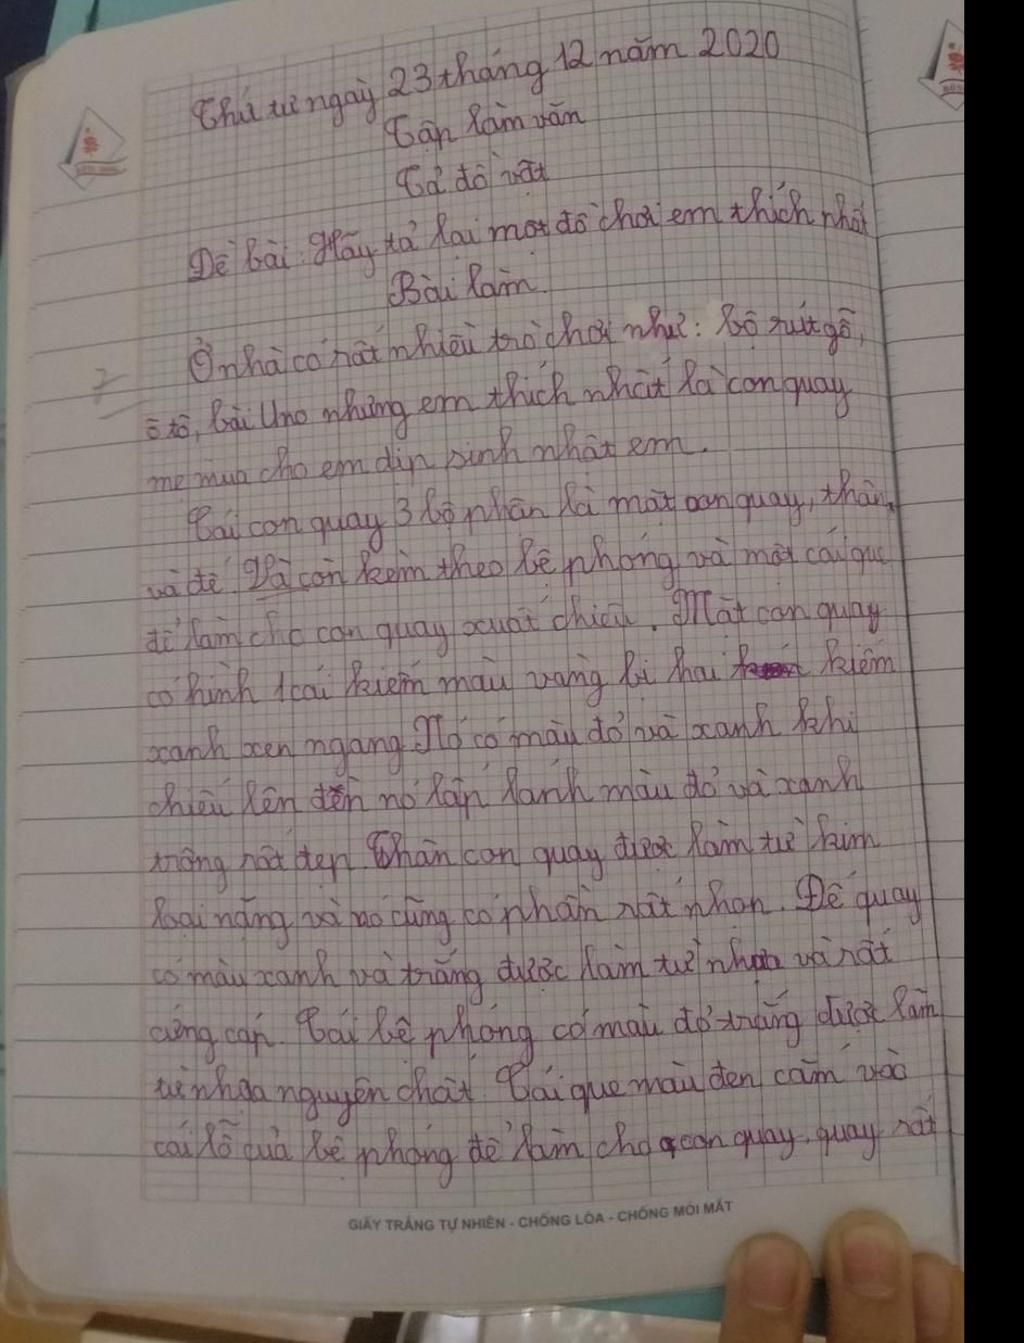 Thứ tư ngày 23 tháng 12 năm 2020
Tập làm văn
Tả đồ vật
Đề bài: Hãy tả lại một đồ chơi em thích nhất
Bài làm.
Ở nhà có rất nhiều trò chơi như: bộ rút gỗ,
ô tô, bài Uno nhưng em thích nhất là con quay
mẹ mua cho em dịp sinh nhật em.
Cái con quay 3 bộ phận là mặt con quay, thân,
và đế. Và còn kèm theo bệ phóng và một cái que
để làm cho con quay xuất chiêu. Mặt con quay
có hình 1 cái kiếm màu vàng bị hai kiếm
xanh xen ngang. Nó có màu đỏ và xanh khi
chiếu lên đèn nó lấp lánh màu đỏ và xanh
trông rất đẹp. Thân con quay được làm từ kim
loại nặng và nó cũng có phần rất nhọn. Đế quay
có màu xanh và trắng được làm từ nhựa và rất
cứng cáp. Cái bệ phóng có màu đỏ trắng được làm
từ nhựa nguyên chất. Cái que màu đen cắm vào
cái lỗ của bệ phóng để làm cho con quay, quay rất
GIẤY TRẮNG TỰ NHIÊN - CHỐNG LÓA - CHỐNG MỎI MẮT